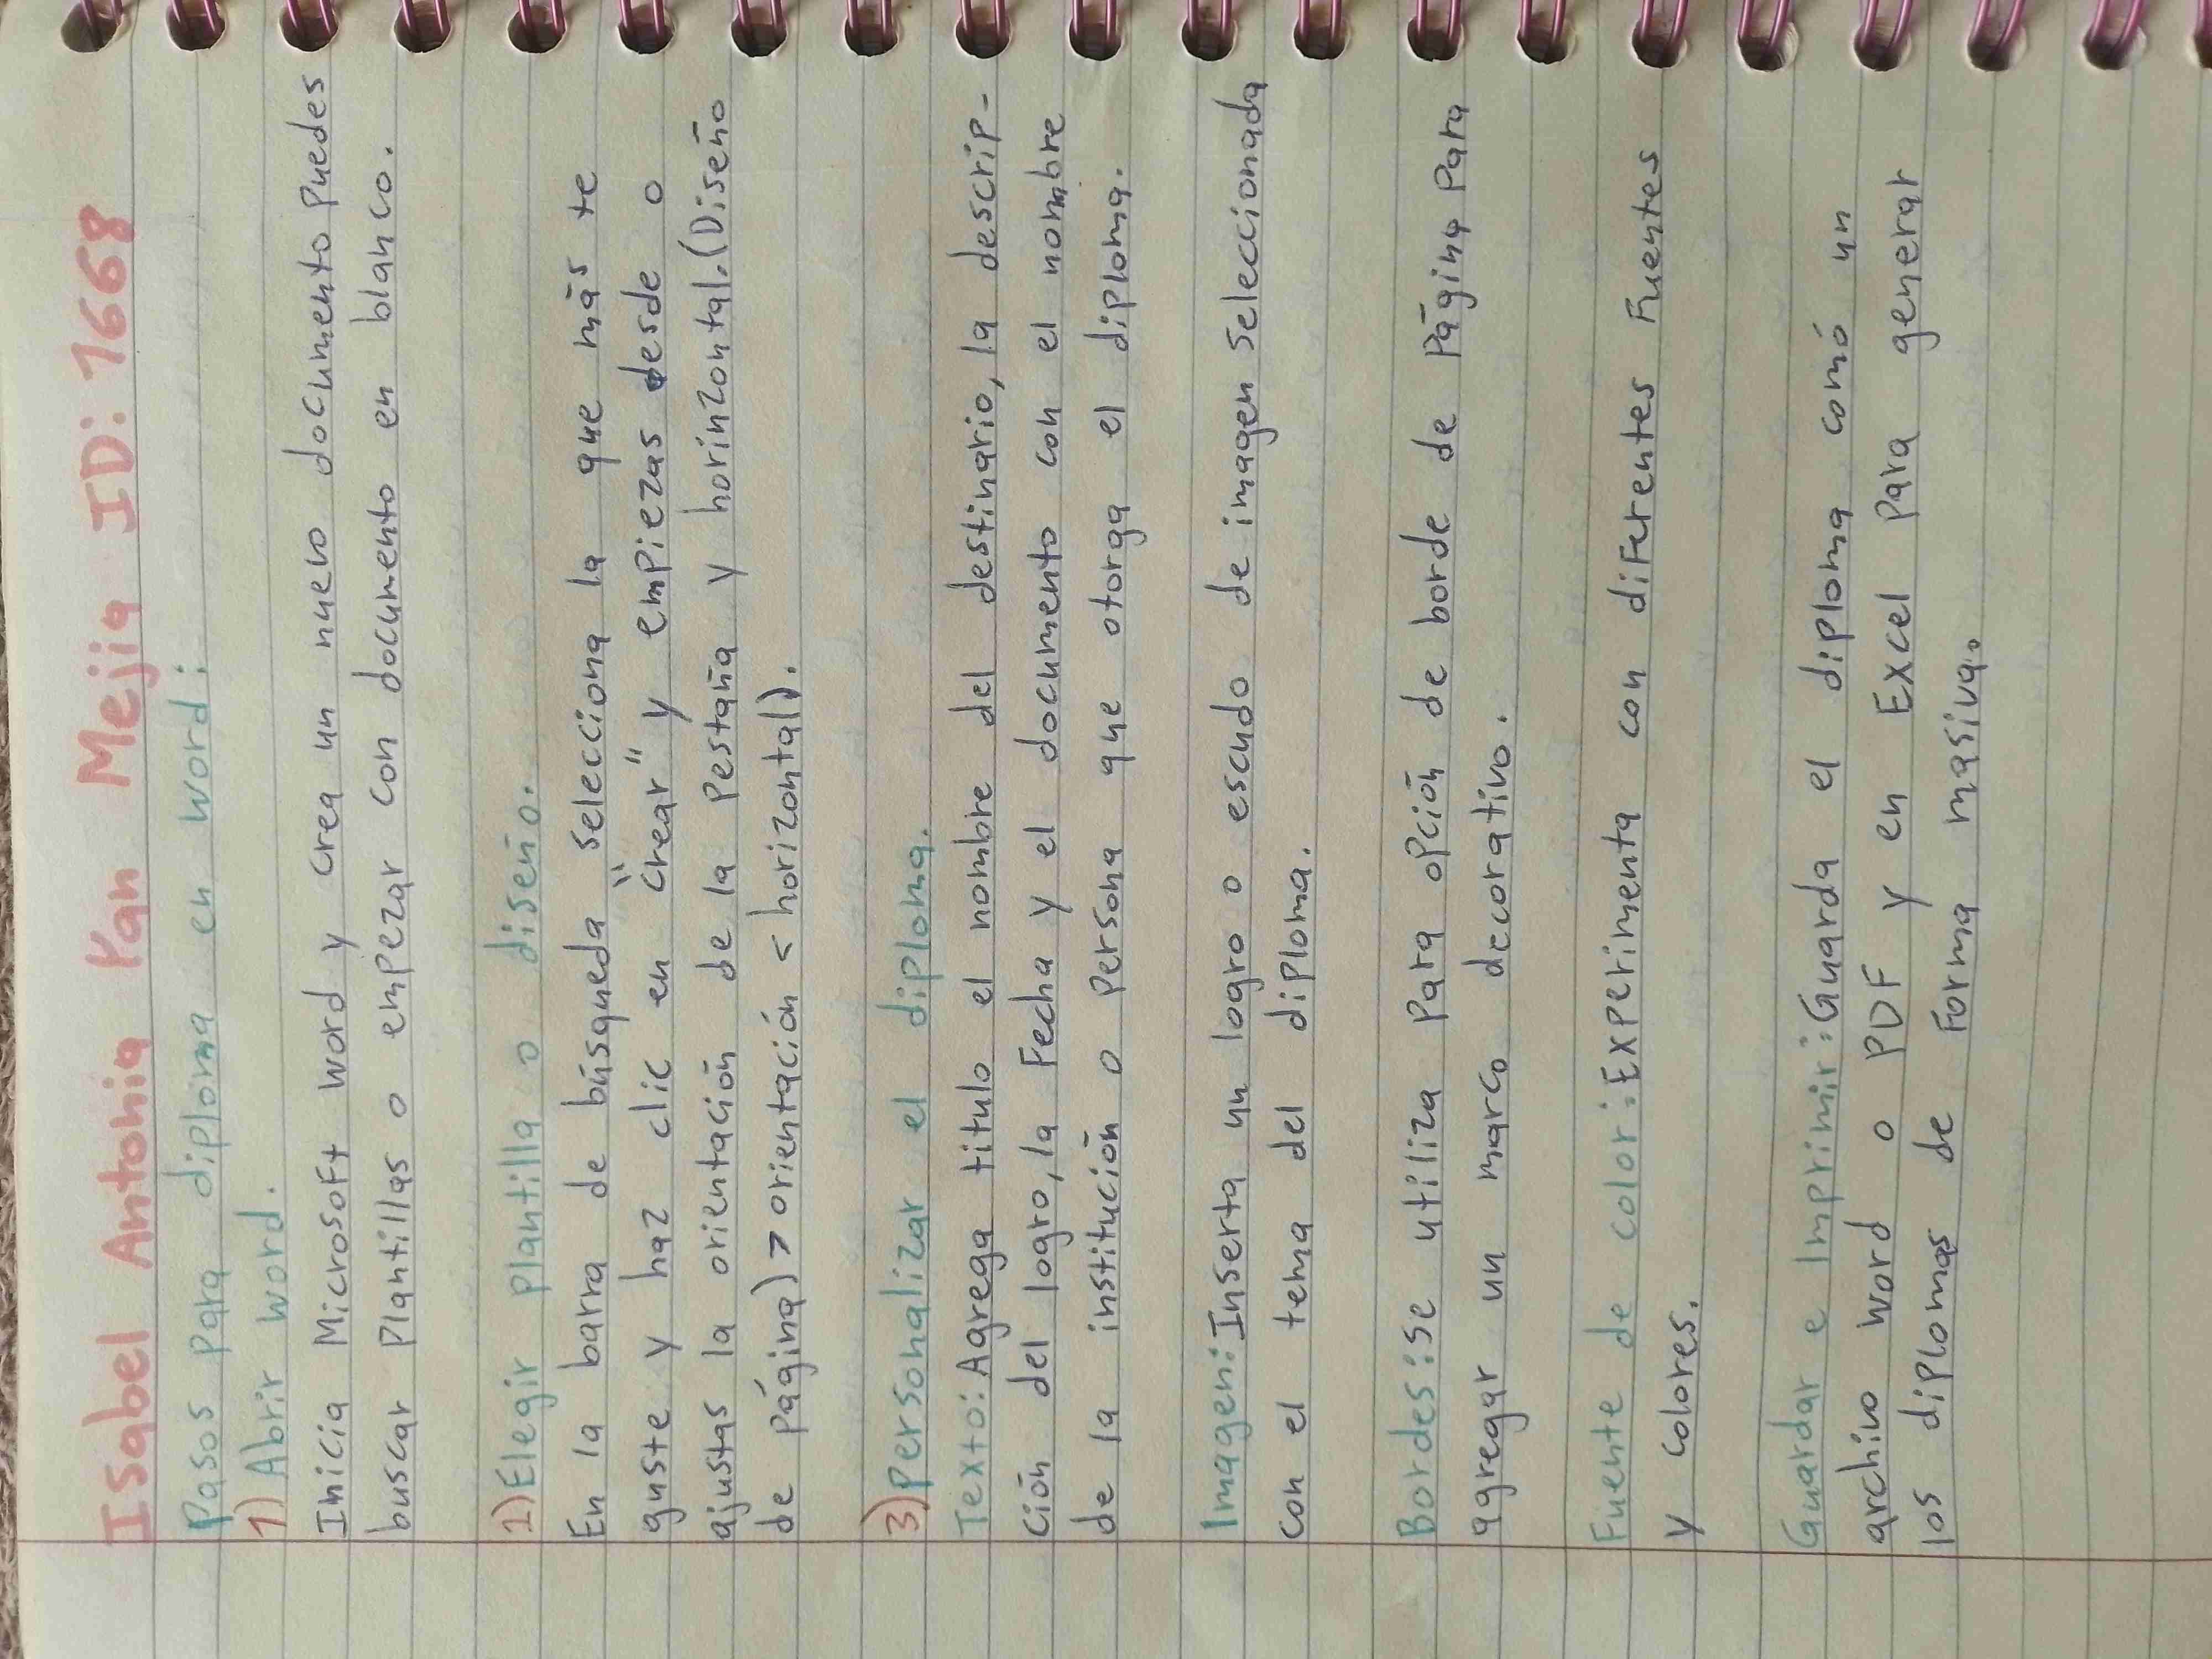 Isabel Antonia Kan Mejia ID: 1668
Pasos para diploma en word:
1) Abrir word.
Inicia Microsoft word y crea un nuevo documento puedes
buscar plantillas o empezar con documento en blanco.
2) Elegir plantilla o diseño.
En la barra de búsqueda selecciona la que más te
guste y haz clic en "crear" y empiezas desde o
ajustas la orientación de la pestaña y horinzontal.(Diseño
de página) > orientación < horizontal).
3) personalizar el diploma.
Texto: Agrega titulo el nombre del destinario, la descrip-
ción del logro, la Fecha y el documento con el nombre
de la institución o persona que otorga el diploma.
Imagen: Inserta un logro o escudo de imagen seleccionada
con el tema del diploma.
Bordes: se utiliza para opción de borde de página para
agregar un marco decorativo.
Fuente de color: Experimenta con diferentes Fuentes
y colores.
Guardar e Imprimir: Guarda el diploma comó un
archivo word o PDF y en Excel para generar
los diplomas de Forma masiva.